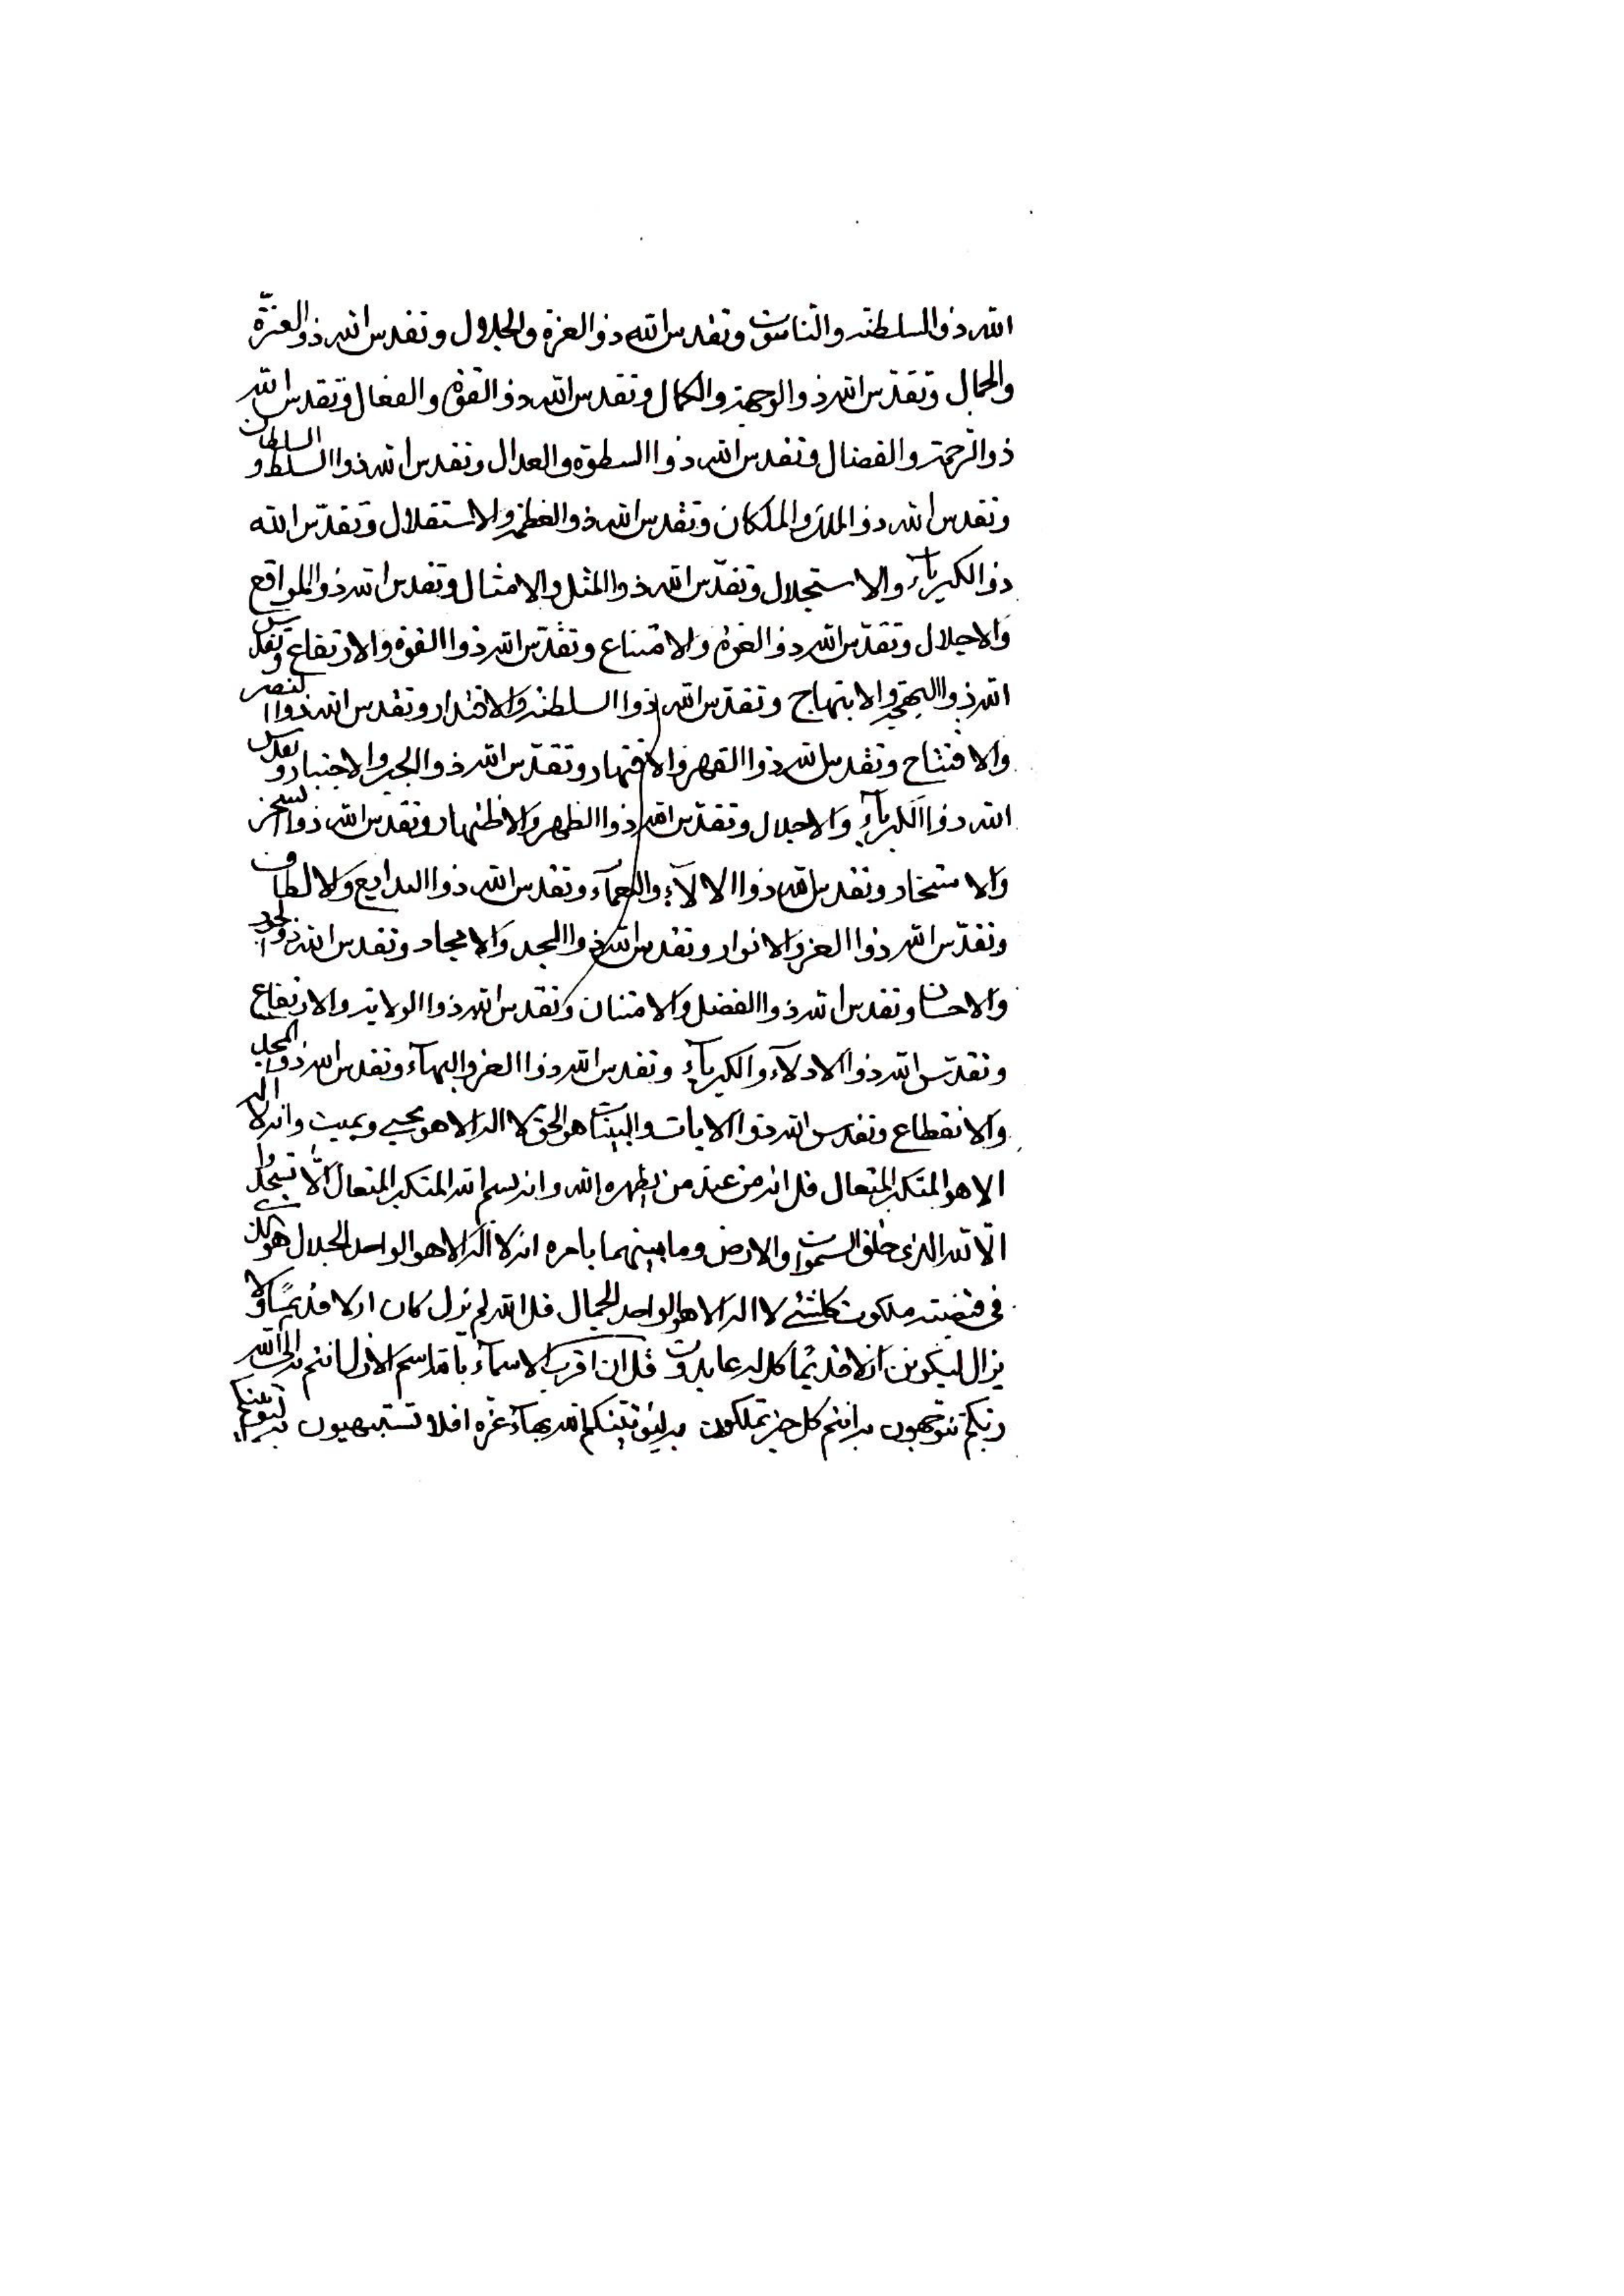 الله ذو السلطنة والناسوت وتقدس الله ذو العزة والجلال وتقدس الله ذو العزّة
والجمال وتقدّس الله ذو الوجهة والكمال وتقدس الله ذو القوة والفعال وتقدس الله
ذو الرحمة والفضال وتقدس الله ذوا السطوة والعدال وتقدس الله ذوا السلط و السلطان
وتقدس الله ذو الملك والملكان وتقدس الله ذو العظمة والاستقلال وتقدّس الله
ذو الكبريآء والاستجلال وتقدّس الله ذو المثل والامثال وتقدس الله ذو المواقع
والاجلال وتقدّس الله ذو العزة والامتناع وتقدّس الله ذوا القوة والارتفاع وتقدس
الله ذو البهجة والابتهاج وتقدّس الله ذوا السلطنة والاقتدار وتقدس الله ذوا النصر
والافتتاح وتقدس الله ذوا القهر والاقتهار وتقدّس الله ذو الجبر والاجتبار وتقدس
الله ذوا الكبريآء والاجلال وتقدّس الله ذوا الظهر والاظهار وتقدس الله ذوا السخر
والاستخار وتقدس الله ذوا الالآء والنعمآء وتقدس الله ذوا البدايع والالطاف
وتقدّس الله ذوا العز والانوار وتقدس الله ذوا المجد والامجاد وتقدس الله ذو الجود
والاحسان وتقدس الله ذوا الفضل والامتنان وتقدس الله ذوا الولاية والارتفاع
وتقدّس الله ذو الادلآء والكبريآء وتقدس الله ذوا العز والبهآء وتقدس الله ذو المجد
والانقطاع وتقدس الله ذو الايات والبينات هو الحق لا اله الا هو يحيي ويميت وانه لا اله
الا هو المتكبر المتعال قل انه من عند من يظهره الله وانه بسم الله المتكبر المتعال الّا تسجدوا
الّا لله الذي خلق السموات والارض وما بينهما بامره انه لا اله الا هو الواحد الجلال هو الذي
في قبضته ملكوت كلشئ لا اله الا هو الواحد الجمال قل الله لم يزل كان ازلا قديمًا ولا
يزال ليكونن ازلا قديمًا كل له عابدون قل ان اقرب الاسمآء بالله اسم الازل انتم به الى الله
ربكم تتوجهون به انتم كل خير تملكون به ليؤتينكم الله بهآء عزه افلا تستبهيون به